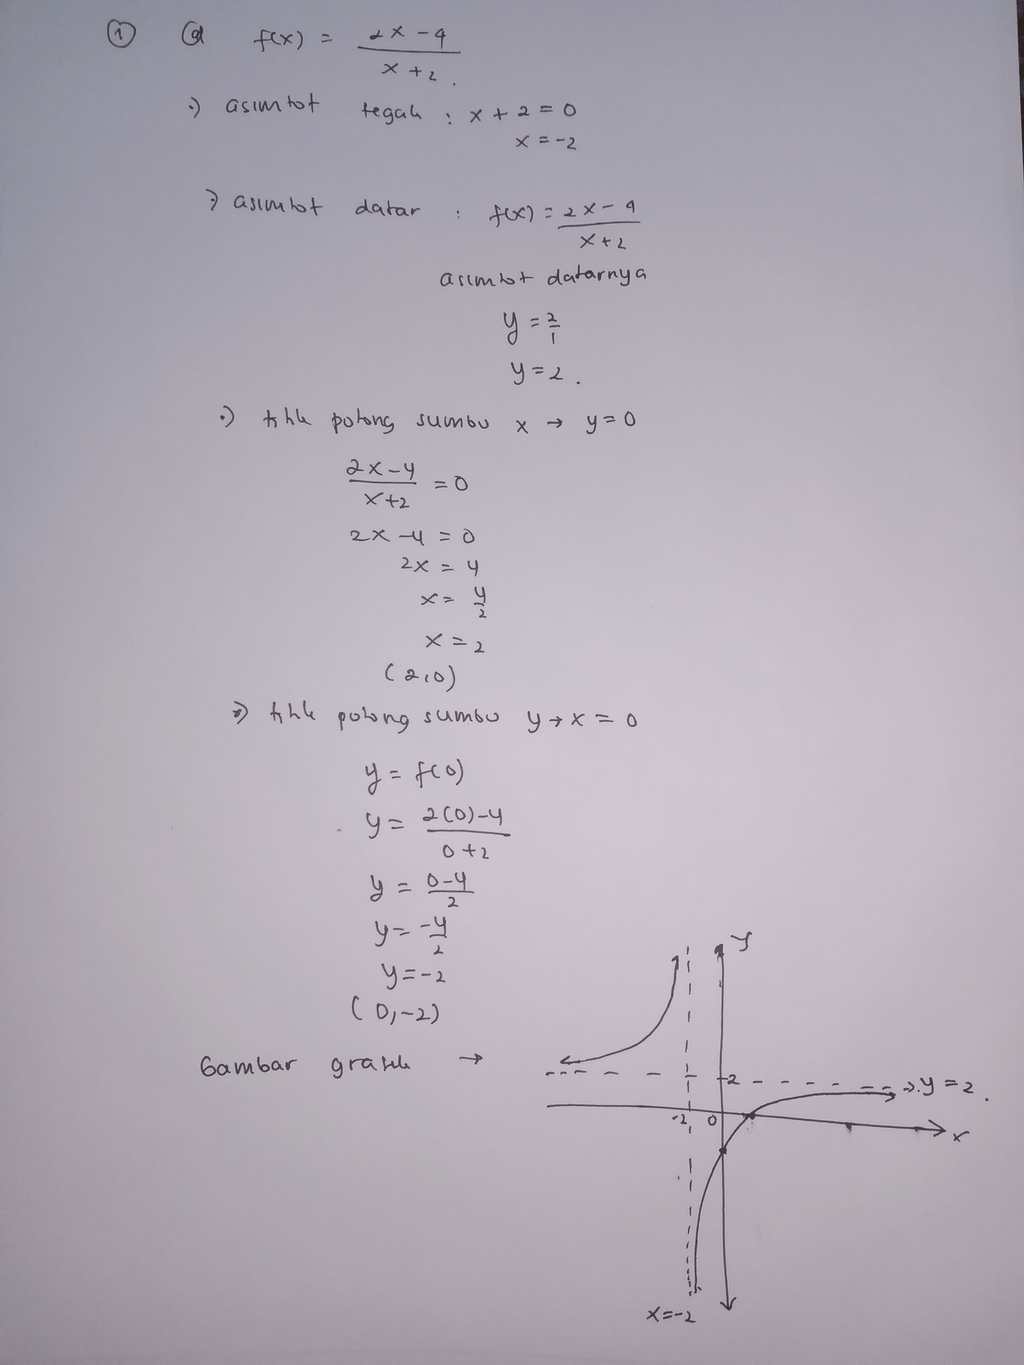 ① a f(x) = (2x-4)/(x+2).
·) asimtot tegak : x + 2 = 0
x = -2
·) asimtot datar : f(x) = (2x-4)/(x+2)
asimtot datarnya
y = 2/1
y = 2.
·) titik potong sumbu x → y = 0
(2x-4)/(x+2) = 0
2x - 4 = 0
2x = 4
x = 4/2
x = 2
(2,0)
·) titik potong sumbu y → x = 0
y = f(0)
y = (2(0)-4)/(0+2)
y = (0-4)/2
y = -4/2
y = -2
(0,-2)
Gambar grafik →
y
2
y = 2.
-2
0
x
x = -2